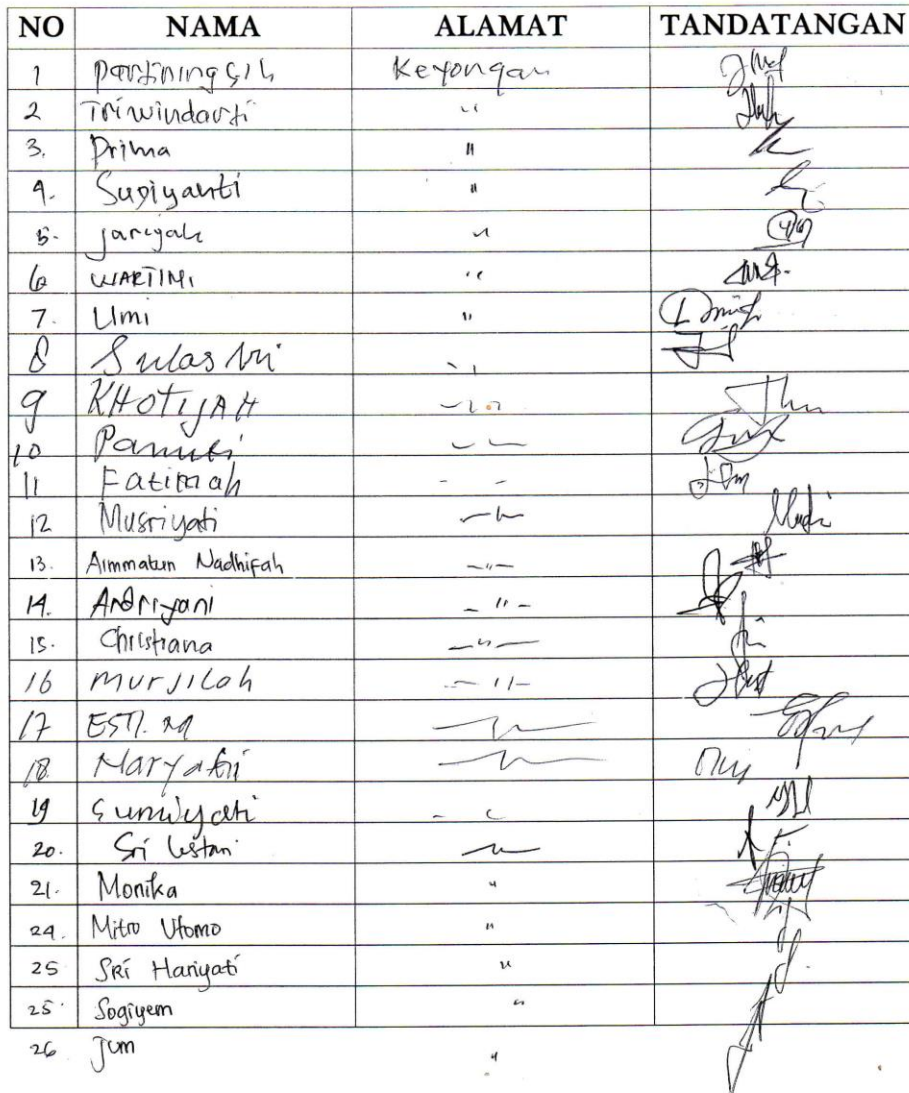 NO NAMA ALAMAT TANDATANGAN
1 Partiningsih Keyongan
2 Triwindarti "
3. Prihna "
4. Sugiyanti "
5. jariyah "
6 WARTINI "
7. Umi "
8 Sulastri "
9 KHOTIJAH "
10 Pamuti "
11 Fatimah "
12 Musriyati "
13. Aimmatun Nadhifah -"-
14. Andriyani -"-
15. Christiana -"-
16 murjilah -"-
17 ESTI. M "
18. Maryatii "
19 Sumiyati "
20. Sri lestari "
21. Monika "
24. Mitro Utomo "
25 SRi Hariyati "
25 Sogiyem "
26 Jum "